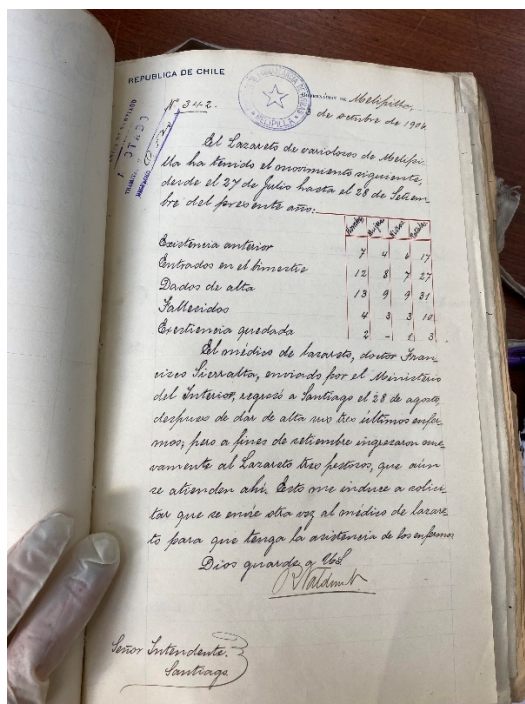 REPUBLICA DE CHILE
Nº 342.
MELIPILLA
Melipilla,
de octubre de 190
El Lazareto de variolosos de Melipi-
lla ha tenido el movimiento siguiente,
desde el 27 de Julio hasta el 28 de Setiem-
bre del presente año:
Hombres Mujeres Niños Totales
Existencia anterior 7 4 6 17
Entrados en el bimestre 12 8 7 27
Dados de alta 13 9 9 31
Fallecidos 4 3 3 10
Existiencia quedada 2 - 1 3
El médico de lazareto, doctor Fran-
cisco Sierralta, enviado por el Ministerio
del Interior, regresó a Santiago el 28 de agosto,
despues de dar de alta sus tres últimos enfer-
mos; pero a fines de setiembre ingresaron nue-
vamente al Lazareto tres pestosos, que aún
se atienden ahí. Esto me induce a solici-
tar que se envie otra vez al médico de lazare-
to para que tenga la asistencia de los enfermos
Dios guarde a US.
Señor Intendente.
Santiago.